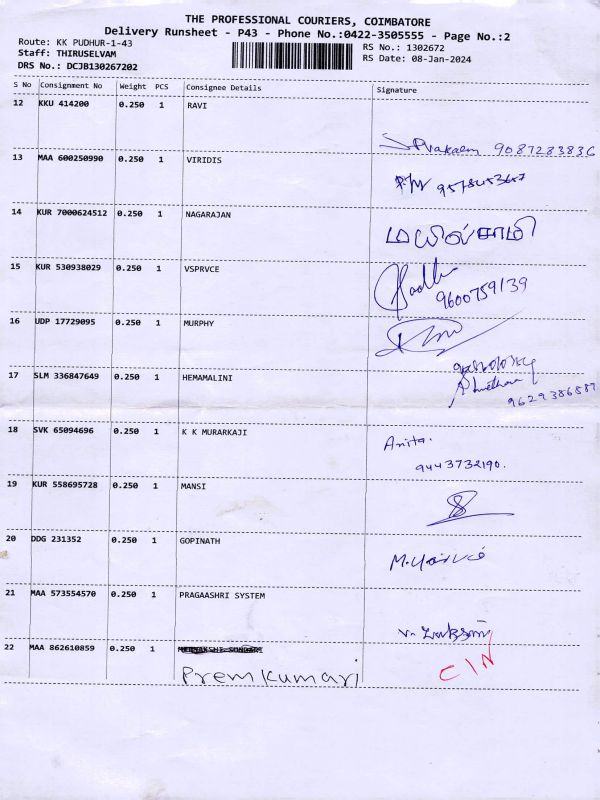 THE PROFESSIONAL COURIERS, COIMBATORE
Delivery Runsheet - P43 - Phone No.:0422-3505555 - Page No.:2
Route: KK PUDHUR-1-43
RS No.: 1302672
Staff: THIRUSELVAM
RS Date: 08-Jan-2024
DRS No.: DCJB130267202
S No Consignment No Weight PCS Consignee Details Signature
12 KKU 414200 0.250 1 RAVI
9087283836
13 MAA 600250990 0.250 1 VIRIDIS
14 KUR 7000624512 0.250 1 NAGARAJAN
மயில்சாமி
15 KUR 530938029 0.250 1 VSPRVCE
9600759139
16 UDP 17729095 0.250 1 MURPHY
17 SLM 336847649 0.250 1 HEMAMALINI
9629386587
18 SVK 65094696 0.250 1 K K MURARKAJI
Anita.
9443732190.
19 KUR 558695728 0.250 1 MANSI
20 DDG 231352 0.250 1 GOPINATH
21 MAA 573554570 0.250 1 PRAGAASHRI SYSTEM
22 MAA 862610859 0.250 1
Premkumari